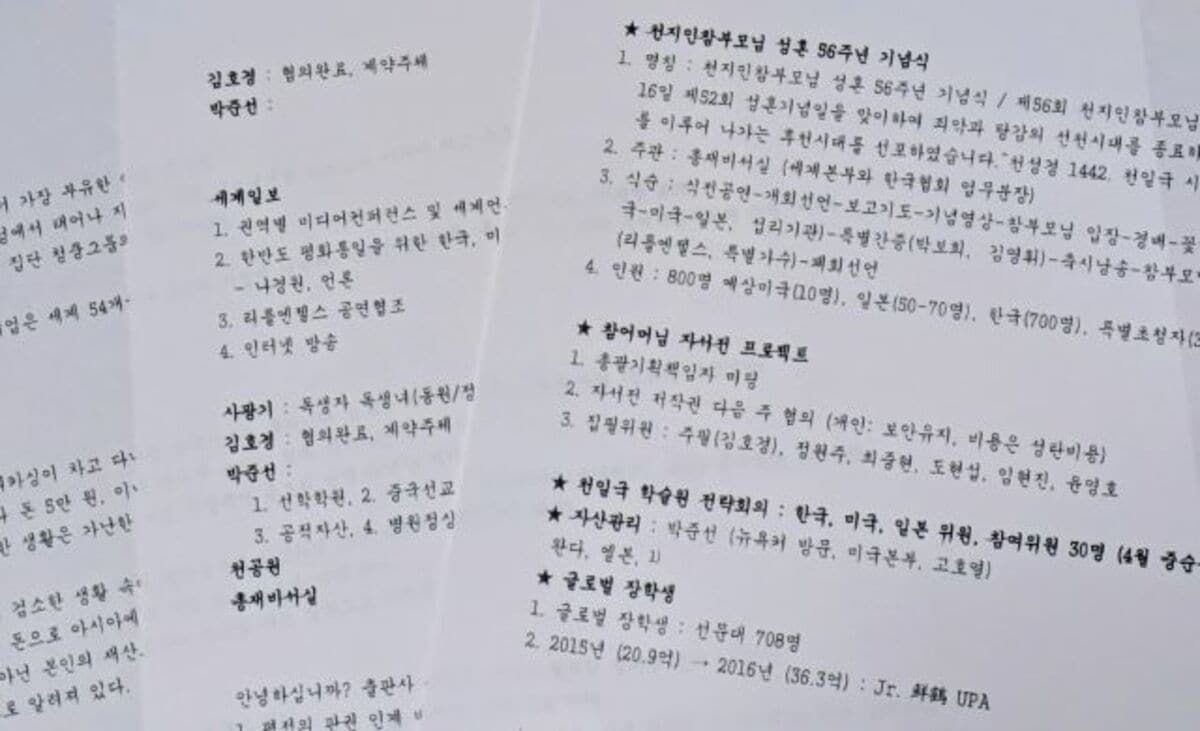 서 가장 부유한
에서 태어나 지
집단 청상그룹의
업은 세계 54개
카싱이 차고 다
돈 5만 원, 이
한 생활은 가난한
검소한 생활 속
돈으로 아시아에
아닌 본인의 재산
로 알려져 있다.
김호경 : 협의완료, 계약주체
박준선 :
세계일보
1. 권역별 미디어컨퍼런스 및 세계언
2. 한반도 평화통일을 위한 한국, 미
- 나경원, 언론
3. 리틀엔젤스 공연협조
4. 인터넷 방송
사광기 : 독생자 독생녀(동원/정
김호경 : 협의완료, 계약주체
박준선 :
1. 선학학원, 2. 중국선교
3. 공적자산, 4. 병원정상
천공원
총재비서실
안녕하십니까? 출판사
1. 평전의 판권 인계
★ 천지인참부모님 성혼 56주년 기념식
1. 명칭 : 천지인참부모님 성혼 56주년 기념식 / 제56회 천지인참부모님
16일 제52회 성혼기념일을 맞이하여 죄악과 탕감의 선천시대를 종료하
를 이루어 나가는 후천시대를 선포하였습니다."천성경 1442. 천일국 시
2. 주관 : 총재비서실 (세계본부와 한국협회 업무분장)
3. 식순 : 식전공연-개회선언-보고기도-기념영상-참부모님 입장-경배-꽃
국-미국-일본, 섭리기관)-특별간증(박보희, 김영휘)-축시낭송-참부모
(리틀엔젤스, 특별가수)-폐회선언
4. 인원 : 800명 예상미국(10명), 일본(50-70명), 한국(700명), 특별초청자(3
★ 참어머님 자서전 프로젝트
1. 총괄기획책임자 미팅
2. 자서전 저작권 다음 주 협의 (개인: 보안유지, 비용은 성탄비용)
3. 집필위원 : 주필(김호경), 정원주, 최중현, 도현섭, 임현진, 윤영호
★ 천일국 학술원 전략회의 : 한국, 미국, 일본 위원, 참여위원 30명 (4월 중순
★ 자산관리 : 박준선 (뉴욕커 방문, 미국본부, 고호열)
완다, 엘본, 1)
★ 글로벌 장학생
1. 글로벌 장학생 : 선문대 708명
2. 2015년 (20.9억) → 2016년 (36.3억) : Jr. 鮮鶴 UPA